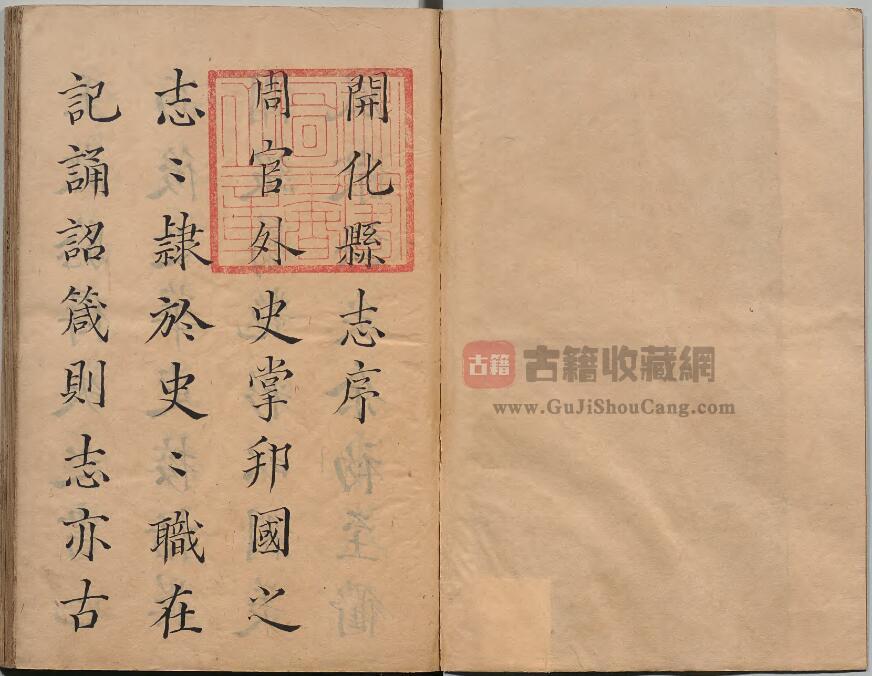 開化縣志序
周官外史掌邦國之
志〻隸於史〻職在
記誦詔箴則志亦古
古籍
古籍收藏網
www.GuJiShouCang.com